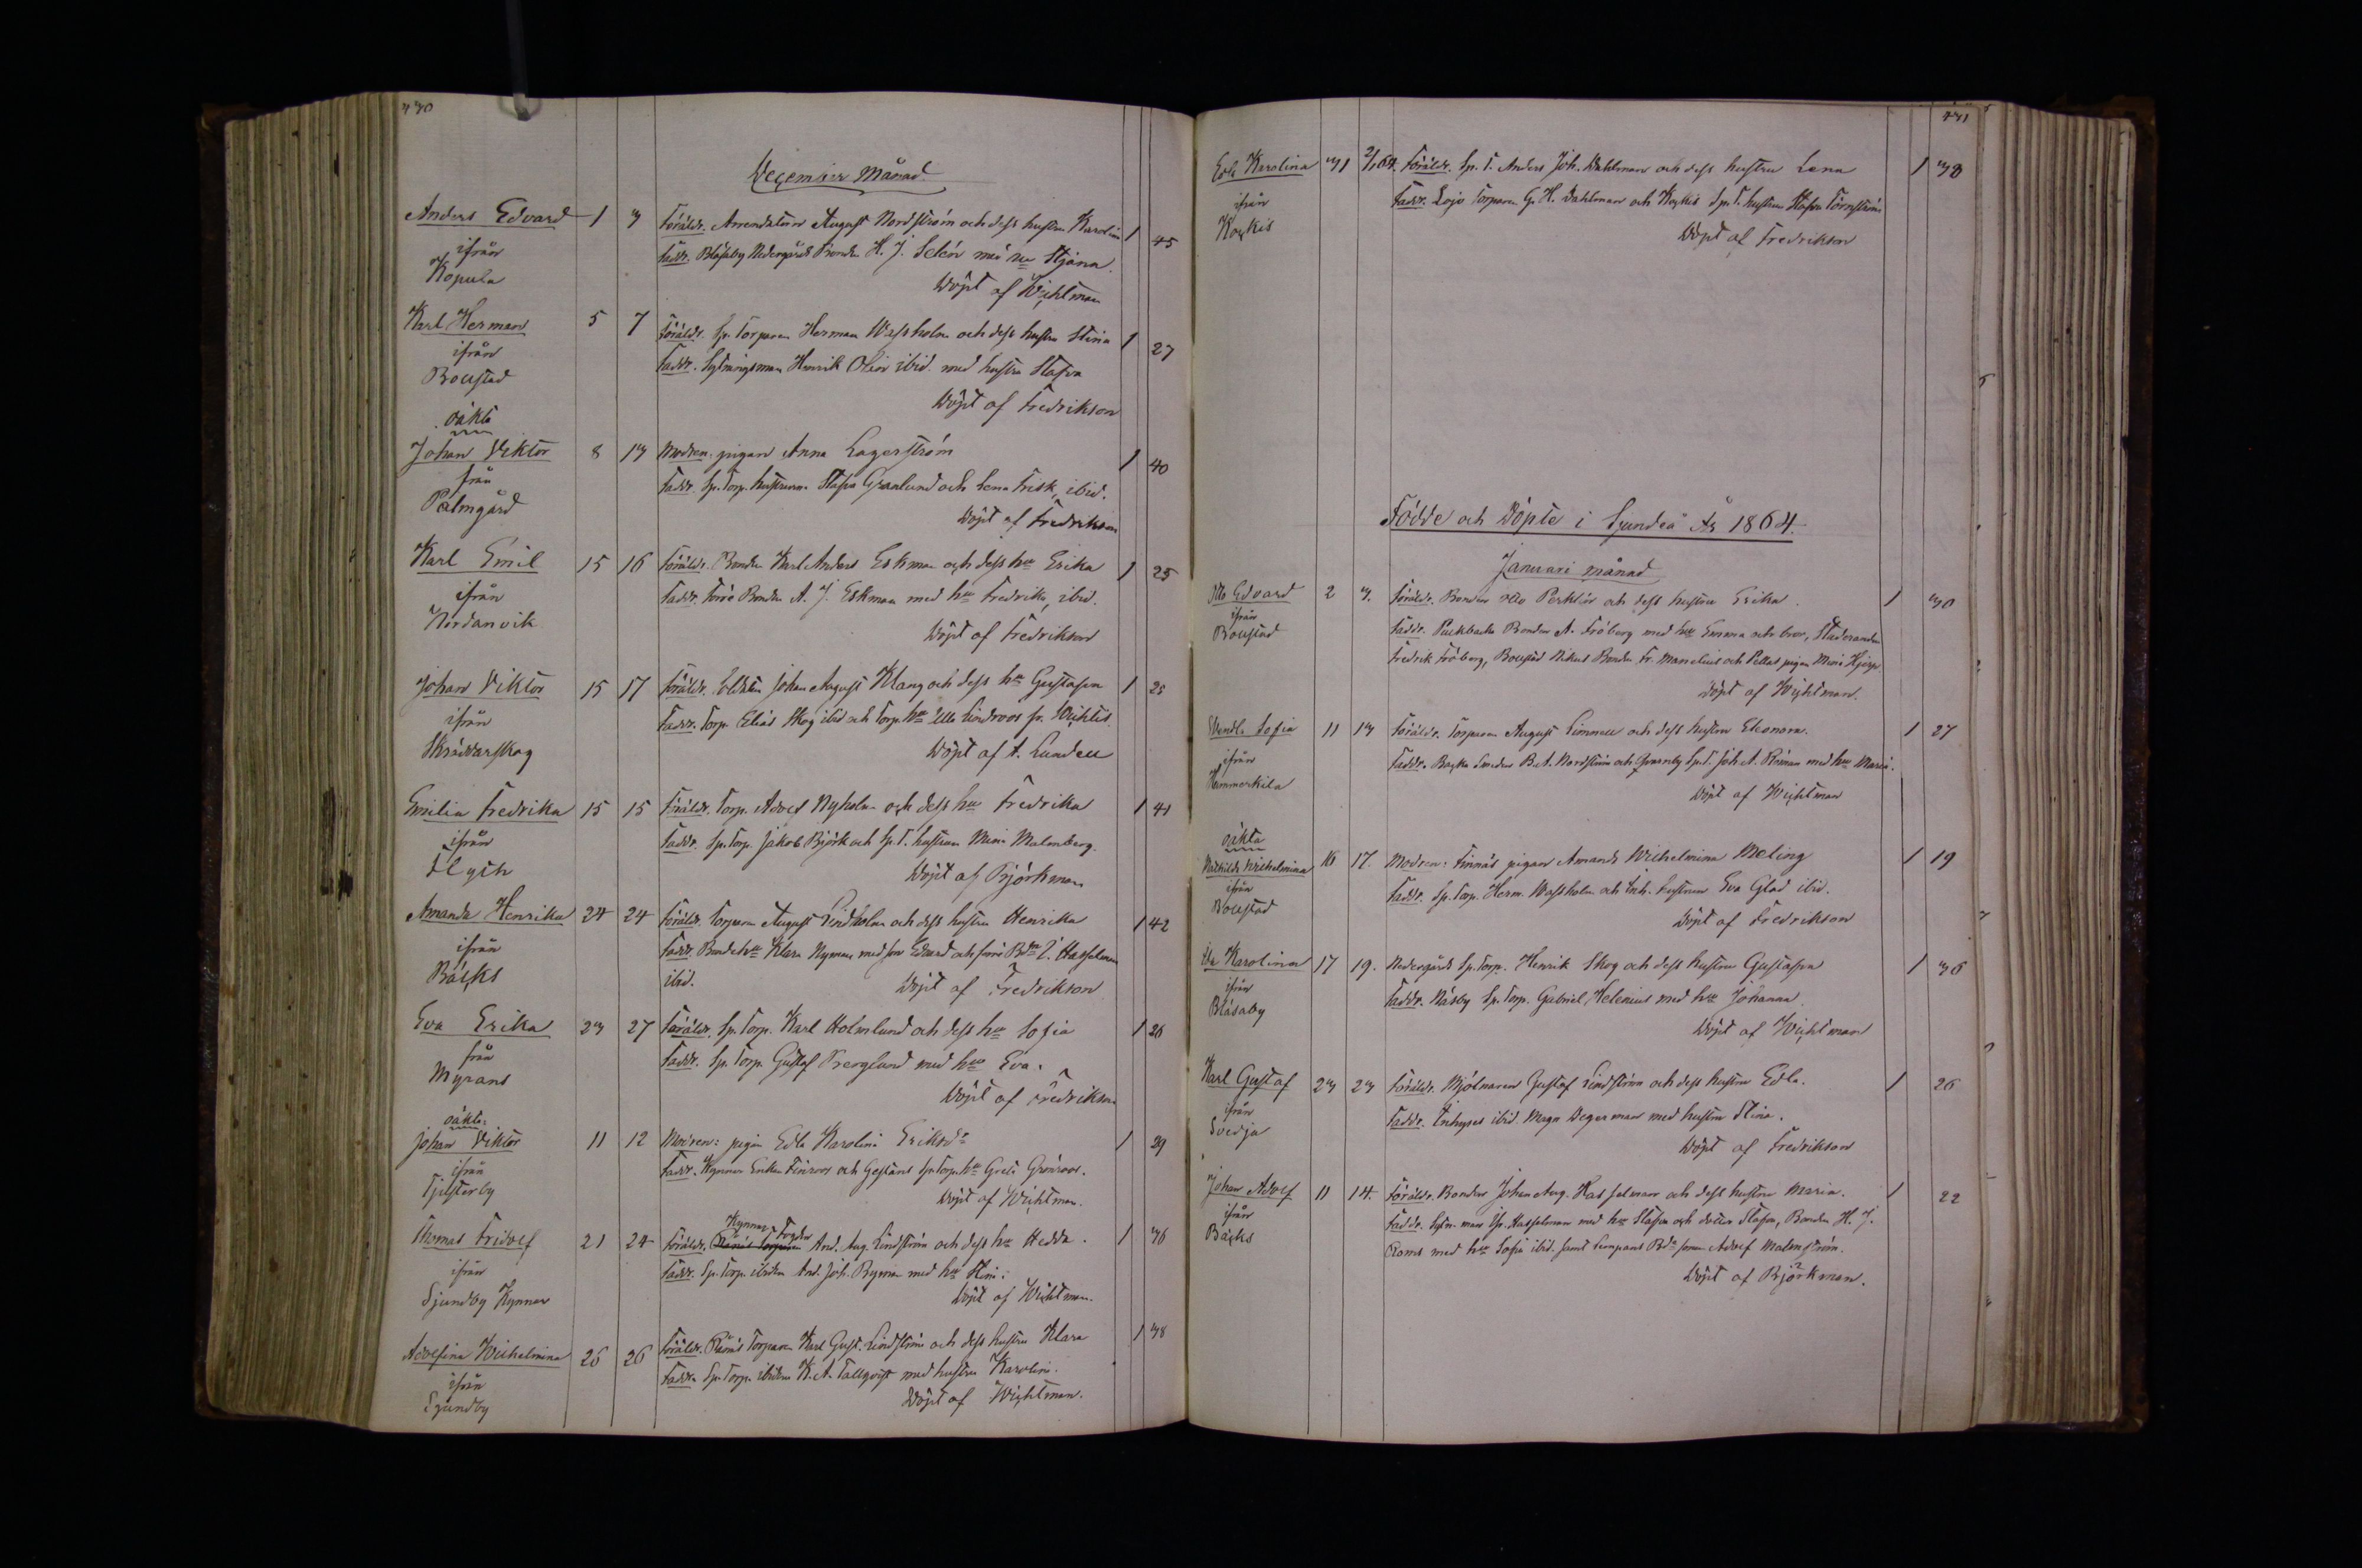 December Månad.
Anders Edvard 1 3 Föräldr. Arrendatorn August Nordström och dess hustru Karolina 1 45
ifrån Faddr. Blåsaby Nedergårds Bonden H. J. Selén med hu Stjärna.
Kopula Döpt af Wichtman
Karl Herman 5 7 Föräldr. Sp. Torparen Herman Wassholm och dess hustru Stina 1 27
ifrån Faddr. Sytningsman Henrik Olin ibid. med hustru Stafva
Boustad Döpt af Fredrikson
oäkta
Johan Viktor 8 13 Modren: pigan Anna Lagerström 1 40
från Faddr. Sp. Torp. hustrurna Stafva Granlund och Lena Frisk, ibid.
Palmgård Döpt af Fredrikson
Karl Emil 15 16 Föräldr. Bonden Karl Anders Eskman och dess hu Erika 1 25
ifrån Faddr. Förre Bonden A. J. Eskman med hu Fredrika, ibid.
Nordanvik Döpt af Fredrikson
Johan Viktor 15 17 Föräldr. Soldaten Johan August Klang och dess hu Gustafva 1 25
ifrån Faddr. Torp. Elias Skog ibid och Torp. hu Ulla Lindroos fr. Wichtis
Skräddarskog Döpt af A. Lundell
Emilia Fredrika 15 15 Föräldr. Torp. Adolf Nyholm och dess hu Fredrika 1 41
ifrån Faddr. Sp. Torp. Jakob Björk och Sp. T. hustrun Mina Malmberg.
Flyth Döpt af Björkman
Amanda Henrika 24 24 Föräldr. Torparen August Lindholm och dess hustru Henrika 1 42
ifrån Faddr. Bonde hu Klara Nyman med son Edvard och förre Bdn I. Hasselman
Bäcks ibid. Döpt af Fredrikson
Eva Erika 23 27 Föräldr. Sp. Torp. Karl Holmlund och dess hu Sofia 1 26
från Faddr. Sp. Torp. Gustaf Berglund med hu Eva.
Myrans Döpt af Fredrikson
oäkta:
Johan Viktor 11 12 Modren: pigan Edla Karolina Eriksdr 1 29
ifrån Faddr. Kynnar Enkan Finroos och Gestans Sp. Torp. hu Greta Grönroos.
Tjusterby Döpt af Wichtman.
Kynnar Fogden
Thomas Fridolf 21 24 Föräldr. Rånäs Torparen And. Aug. Lindström och dess hu Hedda. 1 36
ifrån Faddr. Sp. Torp. ibidem And. Joh. Byman med hu Stina.
Sjundby Kynnar Döpt af Wichtman.
Adolfina Wilhelmina 26 26 Föräldr. Rånäs Torparen Karl Gust. Lindström och dess hustru Klara 1 38
ifrån Faddr. Sp. Torp. ibidem K. A. Tallqvist med hustru Karolina.
Sjundby Döpt af Wichtman.
Edla Karolina 31 2/1 64. Föräldr. Sp. T. Anders Joh. Dahlman och dess hustru Lena 1 38
ifrån Faddr. Lojo Torparen G. H. Dahlman och Kockis Sp. T. hustrun Stafva Törnström
Kockis Döpt af Fredrikson
Födde och Döpte i Sjundeå År 1864.
Januari månad
Otto Edvard 2 3. Föräldr. Bonden Otto Perklén och dess hustru Erika. 1 30
ifrån Faddr. Puckbacka Bonden A. Fröberg med hu Emma och bror,
Boustad Fredrik Fröberg, Boustad Nikus Bonden Fr. Marelius och Pellas pigan Mina
Döpt af Wichtman.
Wendla Sofia 11 13 Föräldr. Torparen August Limnell och dess hustru Eleonora. 1 27
ifrån Faddr. Backa Smeden B. A. Nordström och Qvarnby Sp. T. Joh. A. Roman med hu Maria.
Hummerkila Döpt af Wichtman
oäkta
Mathilda Wilhelmina 16 17. Modren: Finnäs pigan Amanda Wilhelmina Meling 1 19
ifrån Faddr. Sp. Torp. Herm. Wassholm och Inh. hustrun Eva Glad ibid.
Boustad Döpt af Fredrikson
Ida Karolina 17 19. Nedergårds Sp. Torp. Henrik Skog och dess hustru Gustafva 1 36
ifrån Faddr. Näsby Sp. Torp. Gabriel Helenius med hu Johanna.
Blåsaby Döpt af Wichtman
Karl Gustaf 23 23 Föräldr. Mjölnaren Gustaf Lindström och dess hustru Edla. 1 26
ifrån Faddr. Inhyses ibid. Magn Degerman med hustru Stina.
Svedja Döpt af Fredrikson
Johan Adolf 11 14. Föräldr. Bonden Johan Aug. Hasselman och dess hustru Maria. 1 22
ifrån Faddr. Sytn. man Is. Hasselman med hu Stafva och dotter Stafva, Bonden H. J.
Bäcks Roms med hu Sofia ibid. samt Lempans Bde sonen Adolf Malmström.
Döpt af Björkman.